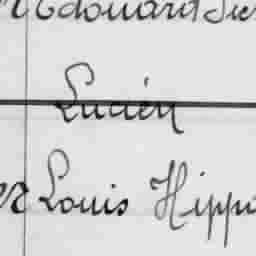 Edouard
Lucien
er Louis Hippo